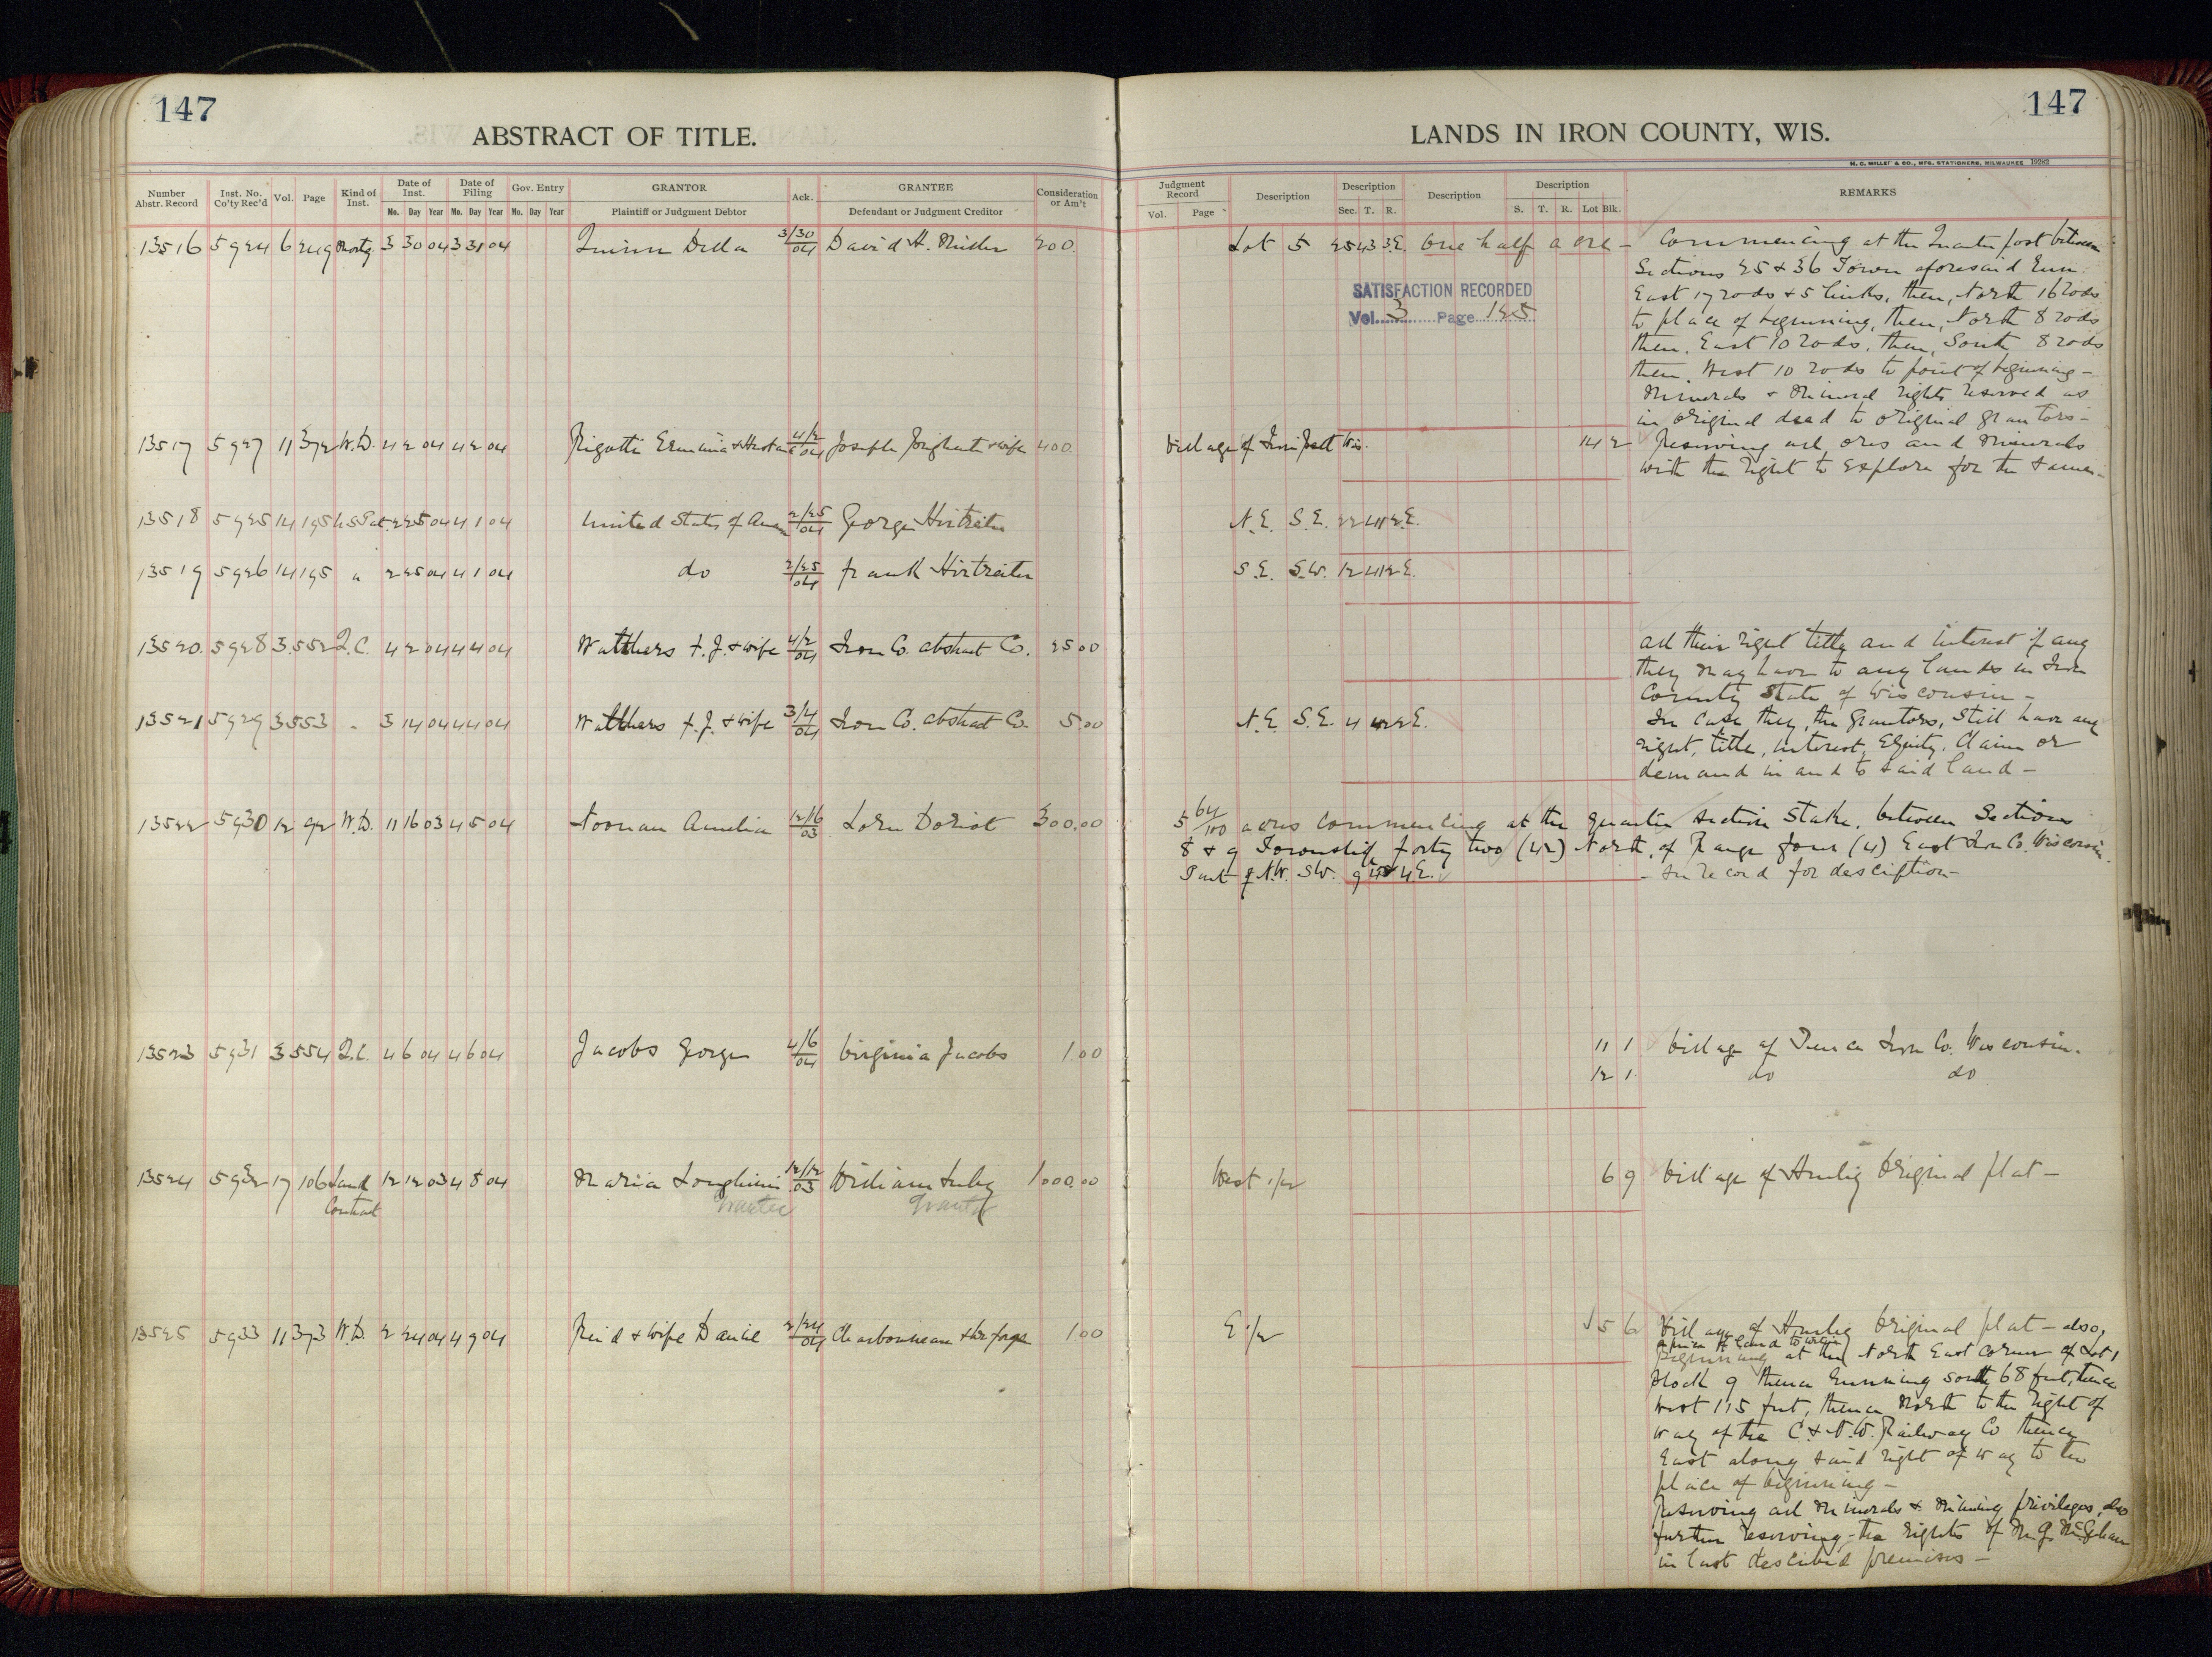 147
147
ABSTRACT OF TITLE.
LANDS IN IRON COUNTY, WIS.
H. C. MILLER & CO., MFG. STATIONERS, MILWAUKEE
Number Abstr. Record Inst. No. Co'ty Rec'd Vol. Page Kind of Inst. Date of Inst. Mo. Day Year Date of Filing Mo. Day Year Gov. Entry Mo. Day Year GRANTOR Plaintiff or Judgment Debtor Ack. GRANTEE Defendant or Judgment Creditor Consideration or Am't
Judgment Record Vol. Page Description Description Sec. T. R. Description Description S. T. R. Lot Blk. REMARKS
13516 5924 6 249 Mortg. 3 30 04 3 31 04 Quinn Della 3/30 04 David H. Miller 200. Lot 5 25 43 3E. One half acre - Commencing at the Quarter post between
Sections 25 & 36 Town aforesaid Run
East 17 rods & 5 links, then, North 16 rods
SATISFACTION RECORDED
Vol. 3 Page 125
to place of beginning, then, North 8 rods
then, East 10 rods, then, South 8 rods
then, West 10 rods to point of beginning -
Minerals & Mineral rights reserved as
in original deed to original grantors -
13517 5927 11 372 W.D. 4 2 04 4 2 04 Rigotti Erminia & Husband 4/2 04 Joseph & wife 400. Village of Iron Belt Wis. 14 2 Reserving all ores and Minerals
with the right to explore for the same -
13518 5925 14 195 U.S. Pat. 2 25 04 4 1 04 United States of Am 2/25 04 George Hirtreiter N.E. S.E. 22 41 2E.
13519 5926 14 195 " 2 25 04 4 1 04 do 2/25 04 Frank Hirtreiter S.E. S.W. 12 41 2E.
13520. 5928 3. 552 Q.C. 4 2 04 4 4 04 Watthers F. J. & wife 4/2 04 Iron Co. Abstract Co. 25 00 All their right title and interest if any
they may have to any lands in Iron
County State of Wisconsin -
13521 5929 3 553 " 3 14 04 4 4 04 Watthers F. J. & wife 3/4 04 Iron Co. Abstract Co. 5.00 N.E. S.E. 4 42 2E. In case they, the Grantors, still have any
right, title, interest, Equity, Claim or
demand in and to said land -
13522 5930 12 92 W.D. 11 16 03 4 5 04 Noonan Amelia 12/16 03 Lorn Doriot 300.00 5 64/100 acres commencing at the quarter section stake, between Sections
8 & 9 Township forty two (42) North, of Range four (4) East Iron Co. Wisconsin.
Part of N.W. S.W. 9 42 4E. - See record for description -
13523 5931 3 554 Q.C. 4 6 04 4 6 04 Jacobs George 4/6 04 Virginia Jacobs 1.00 11 1 Village of Pence Iron Co. Wisconsin.
12 1. do do
13524 5932 17 106 Land 12 12 03 4 8 04 Maria 12/12 03 William 1000.00 West 1/2 6 9 Village of Hurley Original plat -
Contract Grantee Grantor
13525 5933 11 373 W.D. 2 24 04 4 9 04 Reid & wife Daniel 2/24 04 Charbonneau 1.00 E 1/2 5 6 Village of Hurley Original plat - also,
a piece of land to wit:
Beginning at the North East corner of Lot 1
Block 9 thence running south 68 feet, thence
west 115 feet, thence North to the right of
way of the C. & N.W. Railway Co thence
East along said right of way to the
place of beginning -
Reserving all minerals & mining privileges, also
further reserving the rights of M. J.
in last described premises -